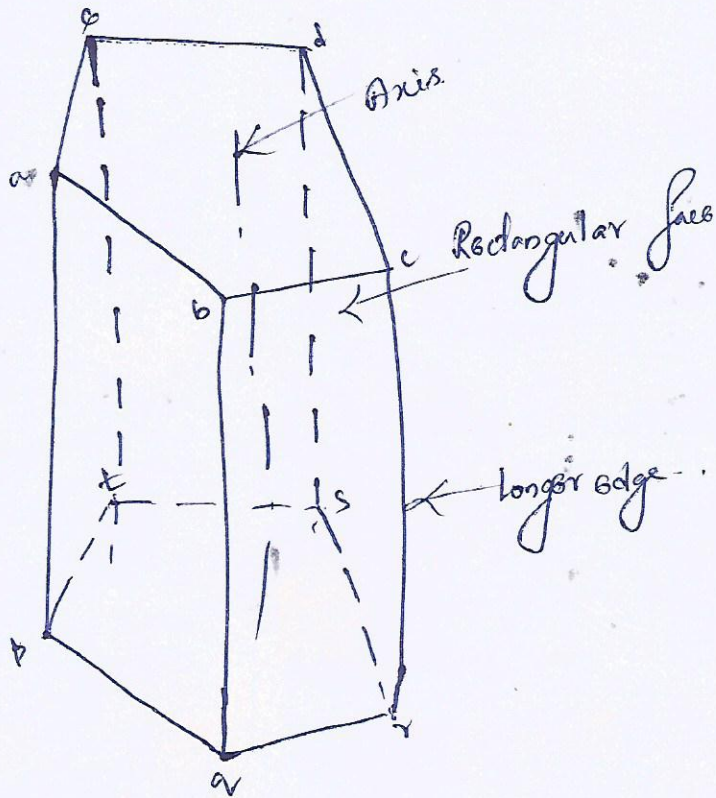 e
d
Axis
a
Rectangular face
c
b
t
s
longer edge
p
r
q